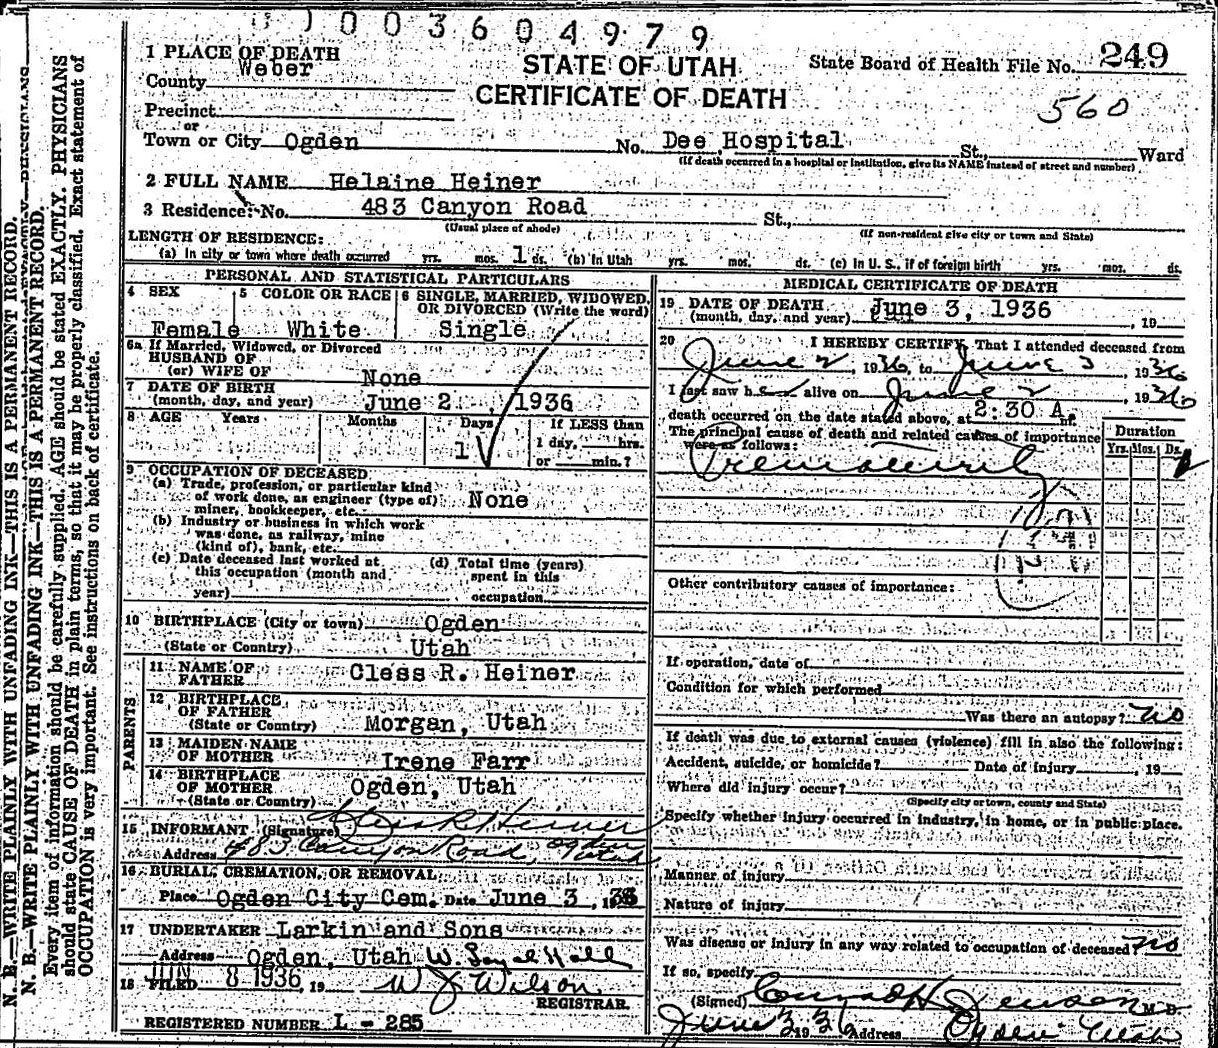 003604979
1 PLACE OF DEATH
STATE OF UTAH
State Board of Health File No. 249
County Weber
CERTIFICATE OF DEATH
560
Precinct
or
Town or City Ogden No. Dee Hospital St., Ward
(If death occurred in a hospital or institution, give its NAME instead of street and number)
2 FULL NAME Helaine Heiner
3 Residence: No. 483 Canyon Road St.,
(Usual place of abode) (If non-resident give city or town and State)
LENGTH OF RESIDENCE:
(a) In city or town where death occurred yrs. mos. 1 ds. (b) In Utah yrs. mos. ds. (c) In U. S., if of foreign birth yrs. mos. ds.
PERSONAL AND STATISTICAL PARTICULARS
4 SEX
Female
5 COLOR OR RACE
White
6 SINGLE, MARRIED, WIDOWED, OR DIVORCED (Write the word)
Single
6a If Married, Widowed, or Divorced
HUSBAND OF
(or) WIFE OF None
7 DATE OF BIRTH
(month, day, and year) June 2, 1936
8 AGE Years Months Days If LESS than
1 1 day, hrs.
or min.?
9 OCCUPATION OF DECEASED
(a) Trade, profession, or particular kind
of work done, as engineer (type of) None
miner, bookkeeper, etc.
(b) Industry or business in which work
was done, as railway, mine
(kind of), bank, etc.
(c) Date deceased last worked at
this occupation (month and
year)
(d) Total time (years)
spent in this
occupation
10 BIRTHPLACE (City or town) Ogden
(State or Country) Utah
PARENTS
11 NAME OF
FATHER Cless R. Heiner
12 BIRTHPLACE
OF FATHER
(State or Country) Morgan, Utah
13 MAIDEN NAME
OF MOTHER Irene Farr
14 BIRTHPLACE
OF MOTHER Ogden, Utah
(State or Country)
15 INFORMANT (Signature) Cless R Heiner
Address 483 Canyon Road, Ogden Utah
16 BURIAL, CREMATION, OR REMOVAL
Place Ogden City Cem. Date June 3, 1936
17 UNDERTAKER Larkin and Sons
Address Ogden, Utah W. Hall
18 FILED JUN 8 1936, 19 W J Wilson
REGISTRAR.
REGISTERED NUMBER L - 285
MEDICAL CERTIFICATE OF DEATH
19 DATE OF DEATH June 3, 1936
(month, day, and year) , 19
20 I HEREBY CERTIFY, That I attended deceased from
June 2, 1936, to June 3, 1936
I last saw her alive on June 2, 1936
death occurred on the date stated above, at 2:30 A. m.
The principal cause of death and related causes of importance
were as follows:
Duration
Yrs. Mos. Ds.
Prematurity
Other contributory causes of importance:
If operation, date of
Condition for which performed
Was there an autopsy? no
If death was due to external causes (violence) fill in also the following:
Accident, suicide, or homicide? Date of injury , 19
Where did injury occur?
(Specify city or town, county and State)
Specify whether injury occurred in industry, in home, or in public place.
Manner of injury
Nature of injury
Was disease or injury in any way related to occupation of deceased? no
If so, specify
(Signed) Conrad H Jenson M. D.
June 3 1936 Address Ogden Utah
N. B.—WRITE PLAINLY WITH UNFADING INK—THIS IS A PERMANENT RECORD.
N. B.—WRITE PLAINLY WITH UNFADING INK—THIS IS A PERMANENT RECORD.
Every item of information should be carefully supplied. AGE should be stated EXACTLY. PHYSICIANS
should state CAUSE OF DEATH in plain terms, so that it may be properly classified. Exact statement of
OCCUPATION is very important. See instructions on back of certificate.